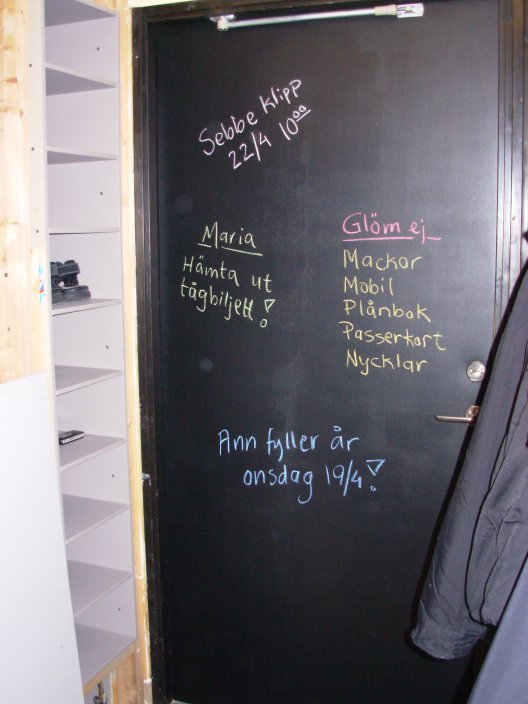 Sebbe klipp
22/4 10⁰⁰
Maria
Hämta ut
tågbiljett!
Glöm ej
Mackor
Mobil
Plånbok
Passerkort
Nycklar
Ann fyller år
onsdag 19/4!